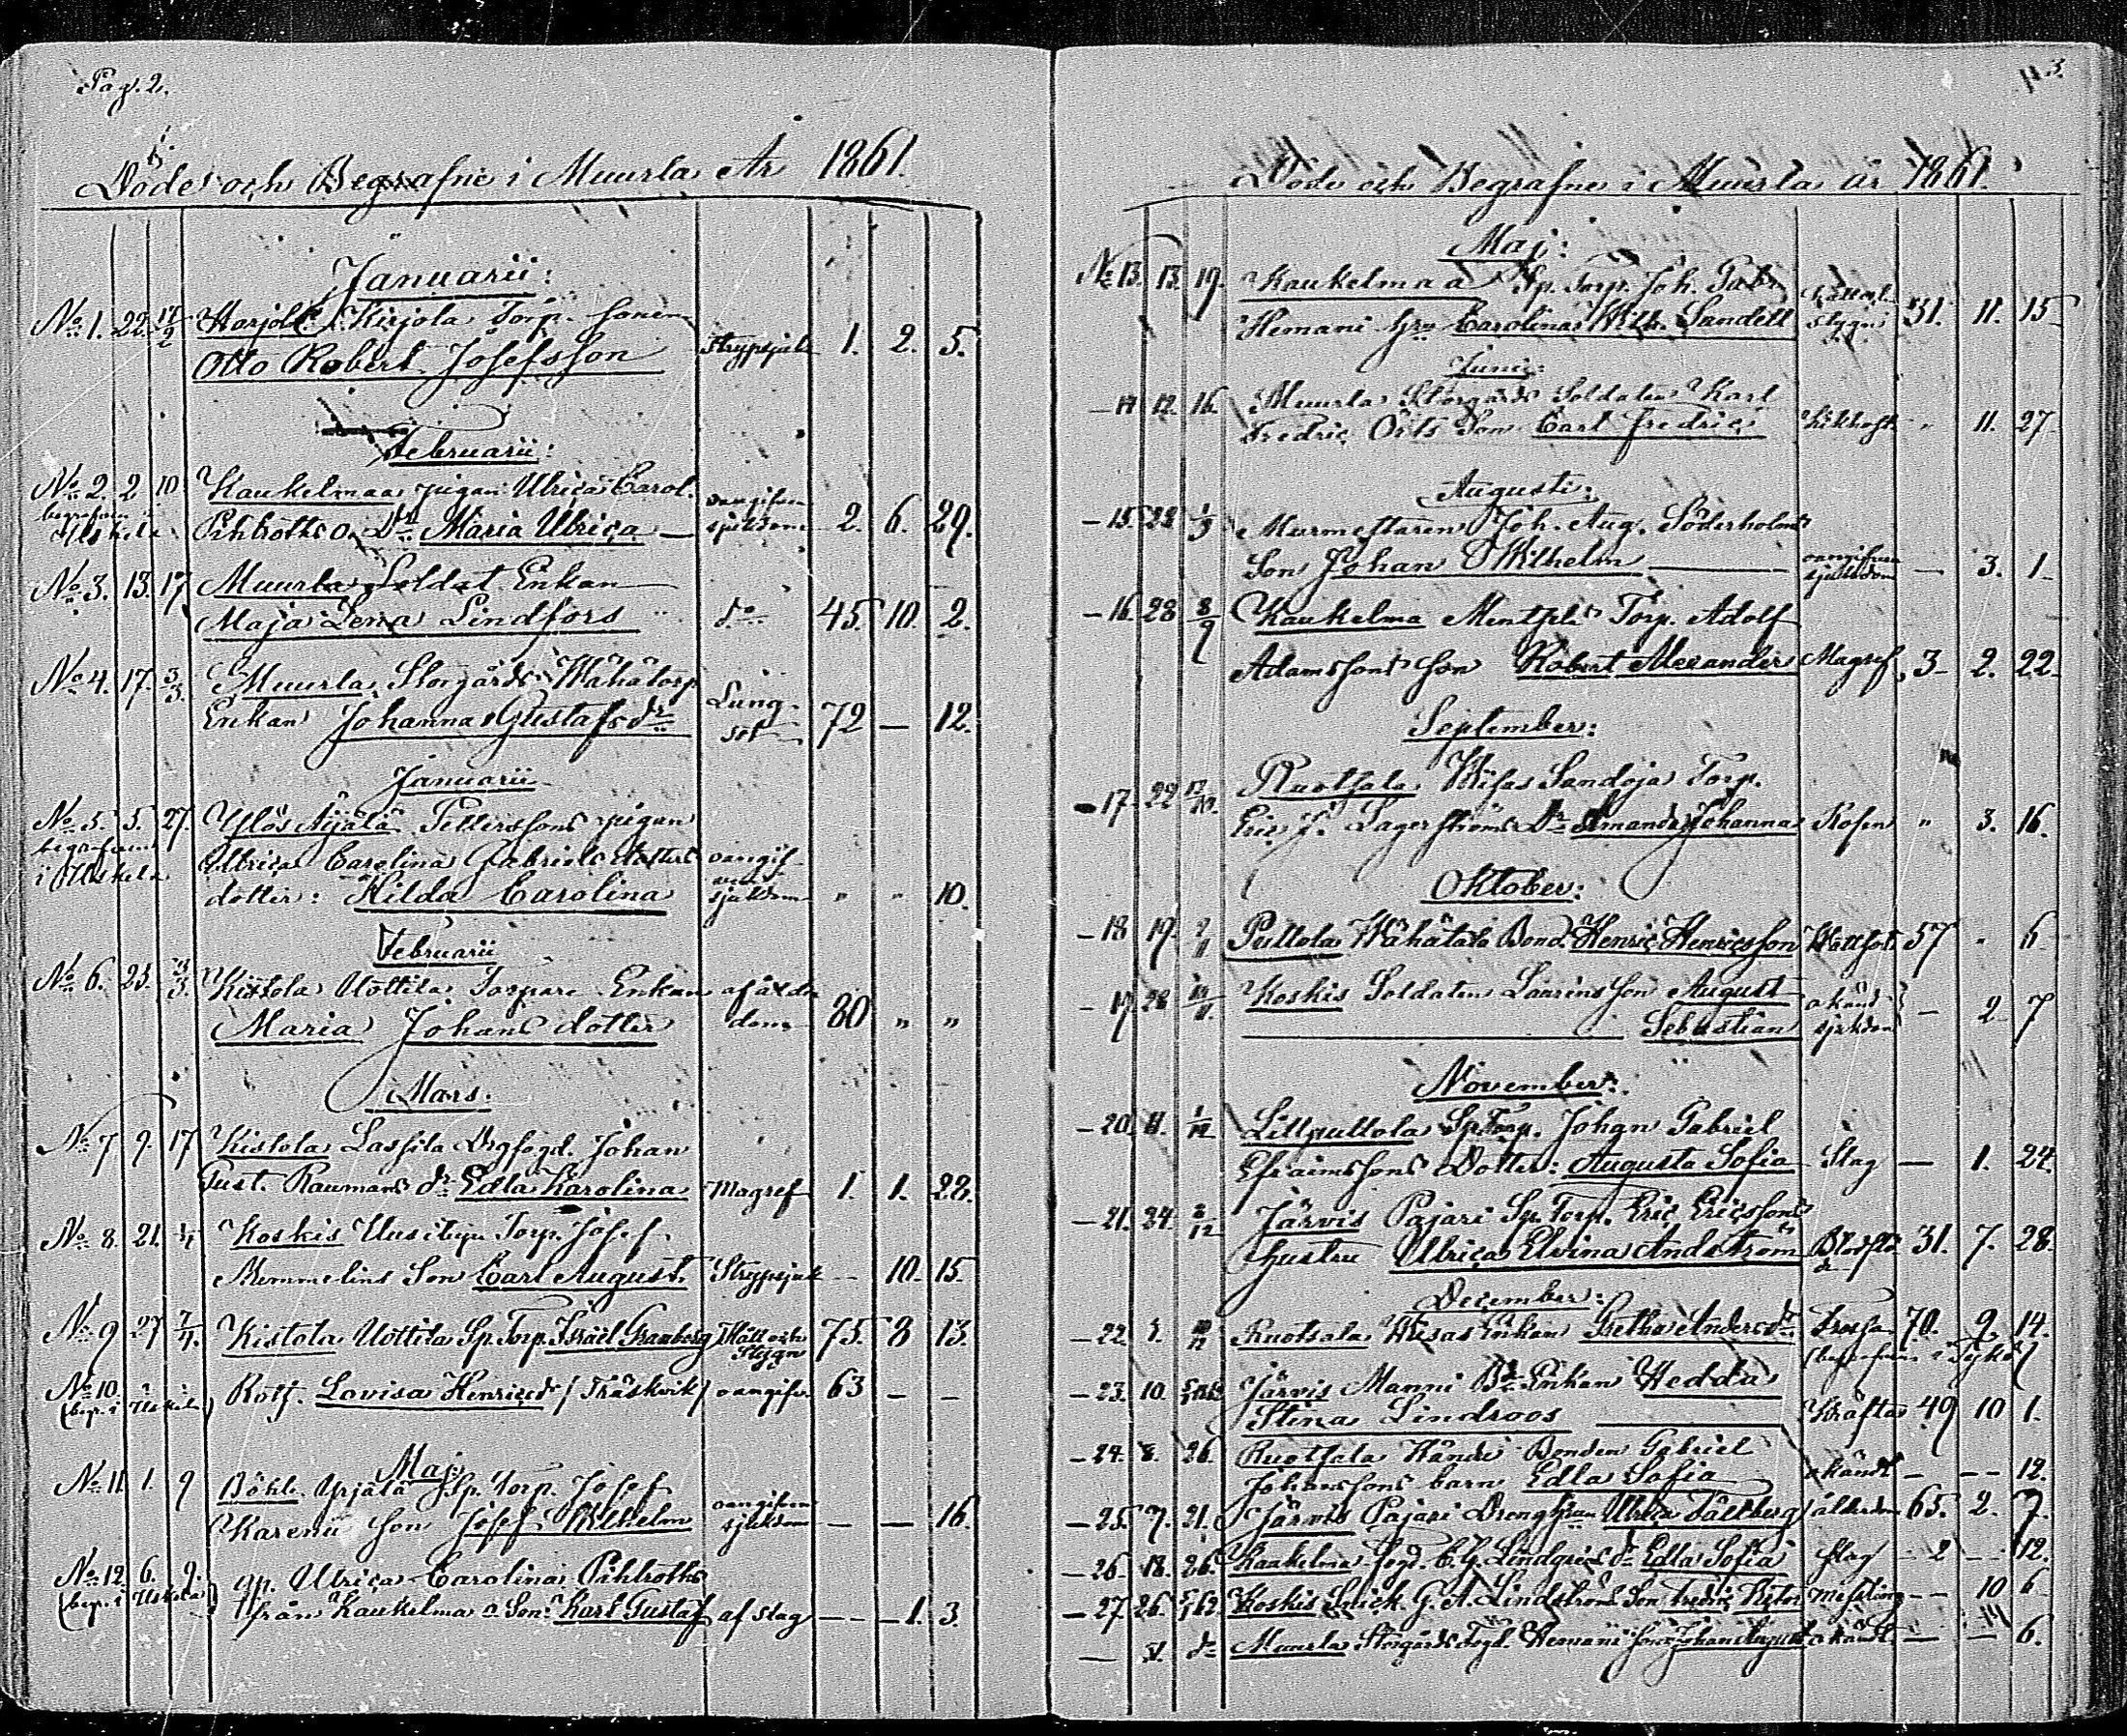 Pag. 2.
Döde och Begrafne i Muurla År 1861.
Januarii:
No 1. 22. 17/2 Harjola Kirjola Torp. sonen
Otto Robert Josefsson Strypsjuk 1. 2. 5.
Februarii:
No 2. 2 10. Kaukelmaa pigan Ulrica Carol. oangifven
begrafven i Uskela Pihlroths o. Dtr Maria Ulrica — sjukdom 2. 6. 29.
No 3. 13. 17 Muurla Soldat Enkan
Maja Lena Lindfors do 45. 10. 2.
No 4. 17. 3/3. Muurla Storgårds Wähätorp Lung-
Enkan Johanna Gustafsdr sot 72 — 12.
Januarii
No 5. 5. 27. Yllös Äijälä Petterssons pigan
begrafven Ulrica Carolina Gabriels dotters oangif-
i Uskela dotter: Hilda Carolina ven sjukdom " " 10.
Februarii
No 6. 23. 3/3. Kistola Uottila Torpare Enkan af ålder
Maria Johans dotter dom 80 " "
Mars.
No 7 9. 17 Kistola Lassila Drgfogd. Johan
Gust. Raumans dr Edla Karolina Magref 1. 1. 28.
No 8. 21. 1/4 Koskis Uusitupa Torp. Josef
Memmelins Son Carl August. Strypsjuk — 10. 15.
No 9 27 7/4. Kistola Uottila Sp. Torp. Israel Granberg Håll och Stygn 75. 8 13.
No 10. Rotf. Lovisa Henricsdr (Träskvik) oangifv. 63 — —
(begr. i Uskela)
Maj.
No 11. 1. 9 Böhle Yrjälä Sp. Torp. Josef
Karenii son Josef Wilhelm oangifven sjukdom — — 16.
No 12 6. 9. qp. Ulrica Carolina Pihlroths
(begr. i Uskela) från Kaukelma o. Son Karl Gustaf af slag — 1. 3.
3.
Döde och Begrafne i Muurla år 1861.
Maj:
No 13. 13. 19. Kaukelmaa Sp. Torp. Joh. Gabr
Hemani hru Carolina Wilh. Sandell stygn 31. 11. 15
Junii:
— 14 12. 16. Muurla Storgårds Soldaten Karl
Fredric Öits Son Carl Fredric Kikhost. " 11. 27
Augusti:
— 15. 23 1/9 Murmestaren Joh. Aug. Söderholms
Son Johan Wilhelm — oangifven sjukdom — 3. 1
— 16. 28 8/9 Kaukelma Torp. Adolf
Adamssons son Robert Alexander Magref 3 2. 22
September:
— 17. 22 Ruotsala Wisas Sandoja Torp.
Eric J. Lagerströms Dr Amanda Johanna Rosen " 3. 16.
Oktober:
— 18 19. Pullola Wähätalo Bond. Henric Henricsson Wattsot. 57 " 6
— 19 28 Koskis Soldaten Laurins son August okänd
Sebastian sjukdom — 2 7
November:
— 20. 11. 1/12 Lillpullola Sp. Torp. Johan Gabriel
Efraimssons Dotter: Augusta Sofia Slag — 1. 24.
— 21. 24. 8/12 Järvis Pajari Sp. Torp. Eric Ericssons
hustru Ulrica Elvina Andström Blodflö 31. 7. 28.
December:
— 22. Ruotsala Wisas Enkan Gretha Andersdr Frossa 70. 9. 14.
(begrafven i Tykö)
— 23. 10. Järvis Manni Enkan Hedda
Stina Lindroos — Kräfta 49 10 1.
— 24. 8. 26. Ruotsala Bonden Gabriel
Johanssons barn Edla Sofia okänd — — 12.
— 25. 7. 21. Järvis Pajari Dreng hrun Ulrica Dahlberg ålderdom 65. 2. 7.
— 26. 18. 26. Kaukelma Fogd. C. G. Lindqvists dr Edla Sofia slag 2 — 12.
— 27 26. Koskis Snick. G. A. Lindströms Son Fredric Victor messling — 10 6
— dr Muurla Storgårds Fogd. Hemanis Son Johan August okänd — — 6.